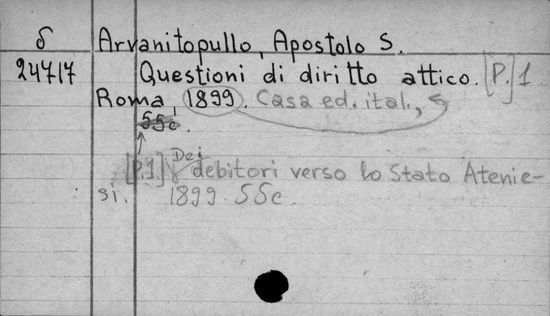 δ Arvanitopullo, Apostolo S.
24717 Questioni di diritto attico. [P.] 1
Roma, 1899. Casa ed. ital.,
55c.
[P.1] Dei debitori verso lo Stato Atenie-
si. 1899. 55c.